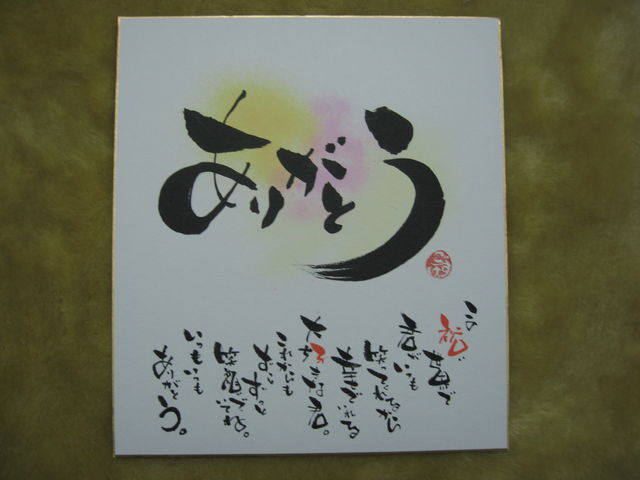 ありがとう
この
君がいつも
笑ってるから
大好きな君。
これからも
ずっとずっと
笑顔でいてね。
いつもいつも
ありがとう。